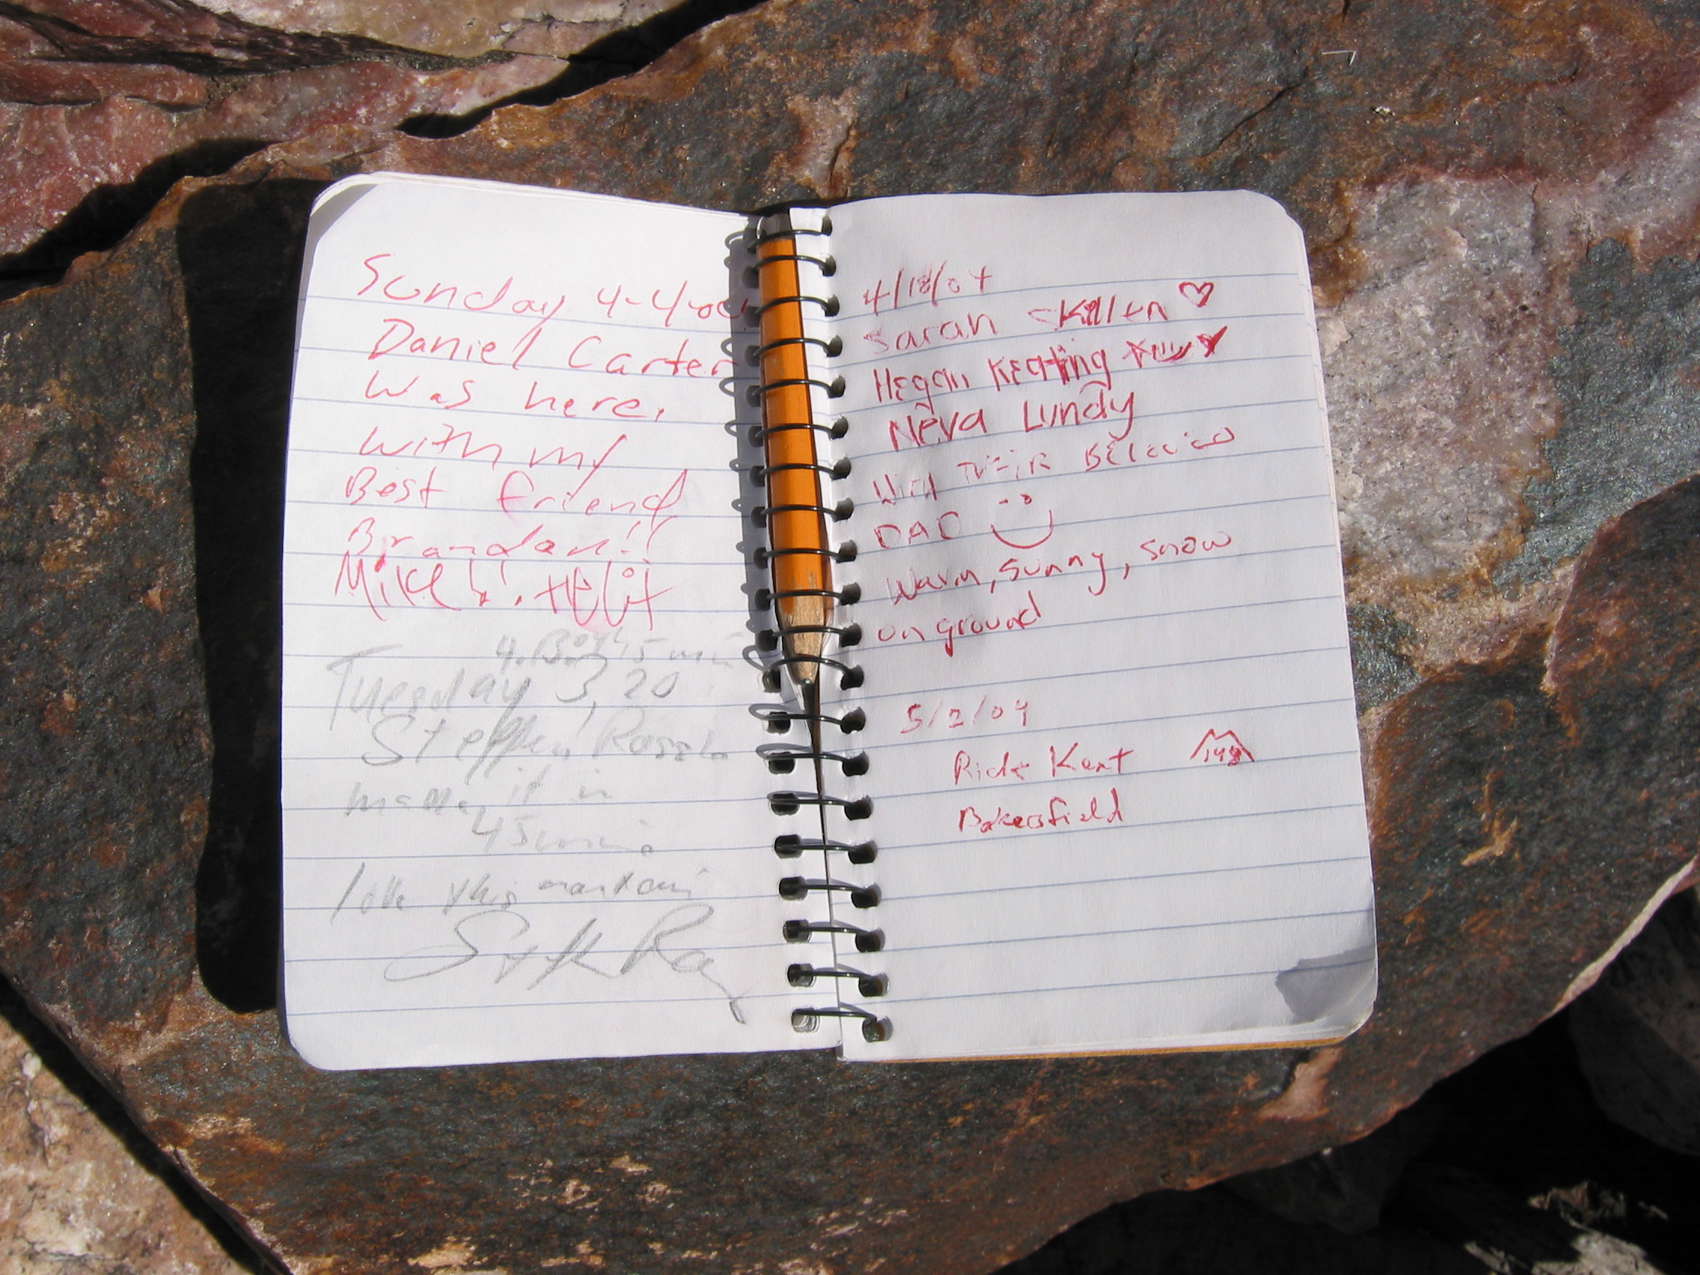 Sunday 4-4-04
Daniel Carter
Was here.
with my
Best friend
Brandan!!
Mike!!
Tuesday 3, 20
Steffen
made it in
45 min.
this
4/18/04
Sarah Killen ♡
Megan Keating
Neva Lundy
With Their Beloved
DAD
Warm, sunny, snow
on ground
5/2/04
Rick Kent
Bakersfield